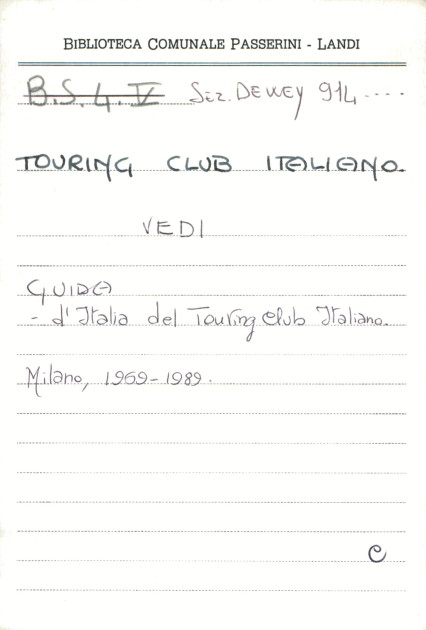 BIBLIOTECA COMUNALE PASSERINI - LANDI
B.S.4.V Sez. DEWEY 914 ....
TOURING CLUB ITALIANO.
VEDI
GUIDA
- d'Italia del Touring Club Italiano.
Milano, 1969-1989.
C